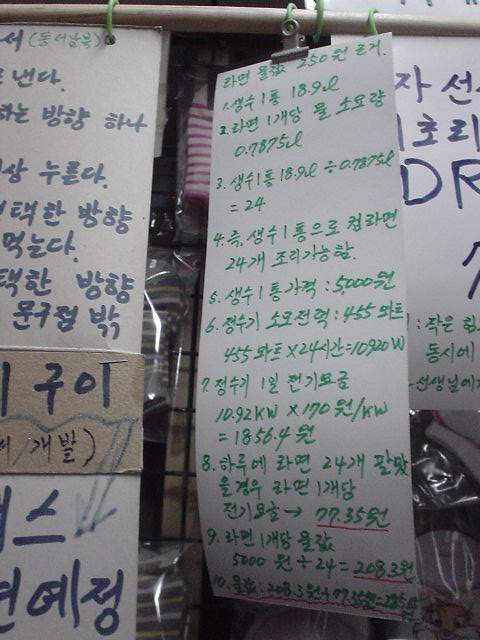 서 (동서남북)
낸다.
하는 방향 하나
상 누른다.
택한 방향
먹는다.
택한 방향
문구점 밖
구이
개발)
스
예정
라면 물값 250원 근거.
1. 생수 1통 18.9ℓ
2. 라면 1개당 물 소요량
0.7875ℓ
3. 생수 1통 18.9ℓ ÷ 0.7875ℓ
= 24
4. 즉, 생수 1통으로 컵라면
24개 조리가능함.
5. 생수 1통가격 : 5000원
6. 정수기 소모전력 : 455 와트
455 와트 × 24시간 = 10920 W
7. 정수기 1일 전기요금
10.92KW × 170 원/KW
= 1856.4 원
8. 하루에 라면 24개 팔았
을경우 라면 1개당
전기요금 → 77.35원
9. 라면 1개당 물값
5000 원 ÷ 24 = 208.3원
10. 물값 : 208.3원 + 77.35원 =
자 선
초리
DR
: 작은 힘
동시에
선생님에게